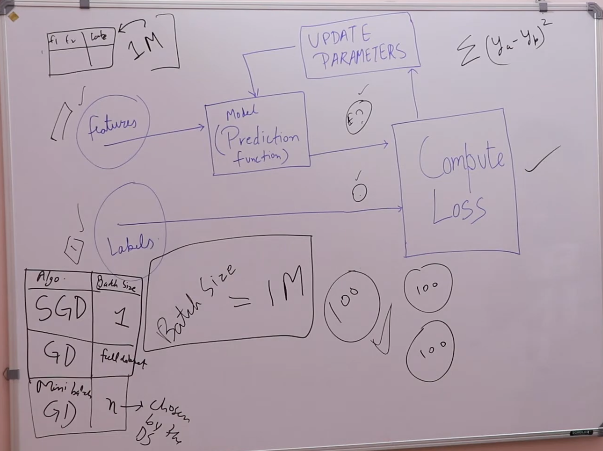 f1 f2
1M
UPDATE
PARAMETERS
Σ(ya-yp)²
Features
Model
(Prediction
function)
Compute
Loss
Labels
Algo.
Batch Size
SGD
1
GD
full dataset
Mini batch
GD
n → chosen
by the
DS
Batch Size
= 1M
100
100
100